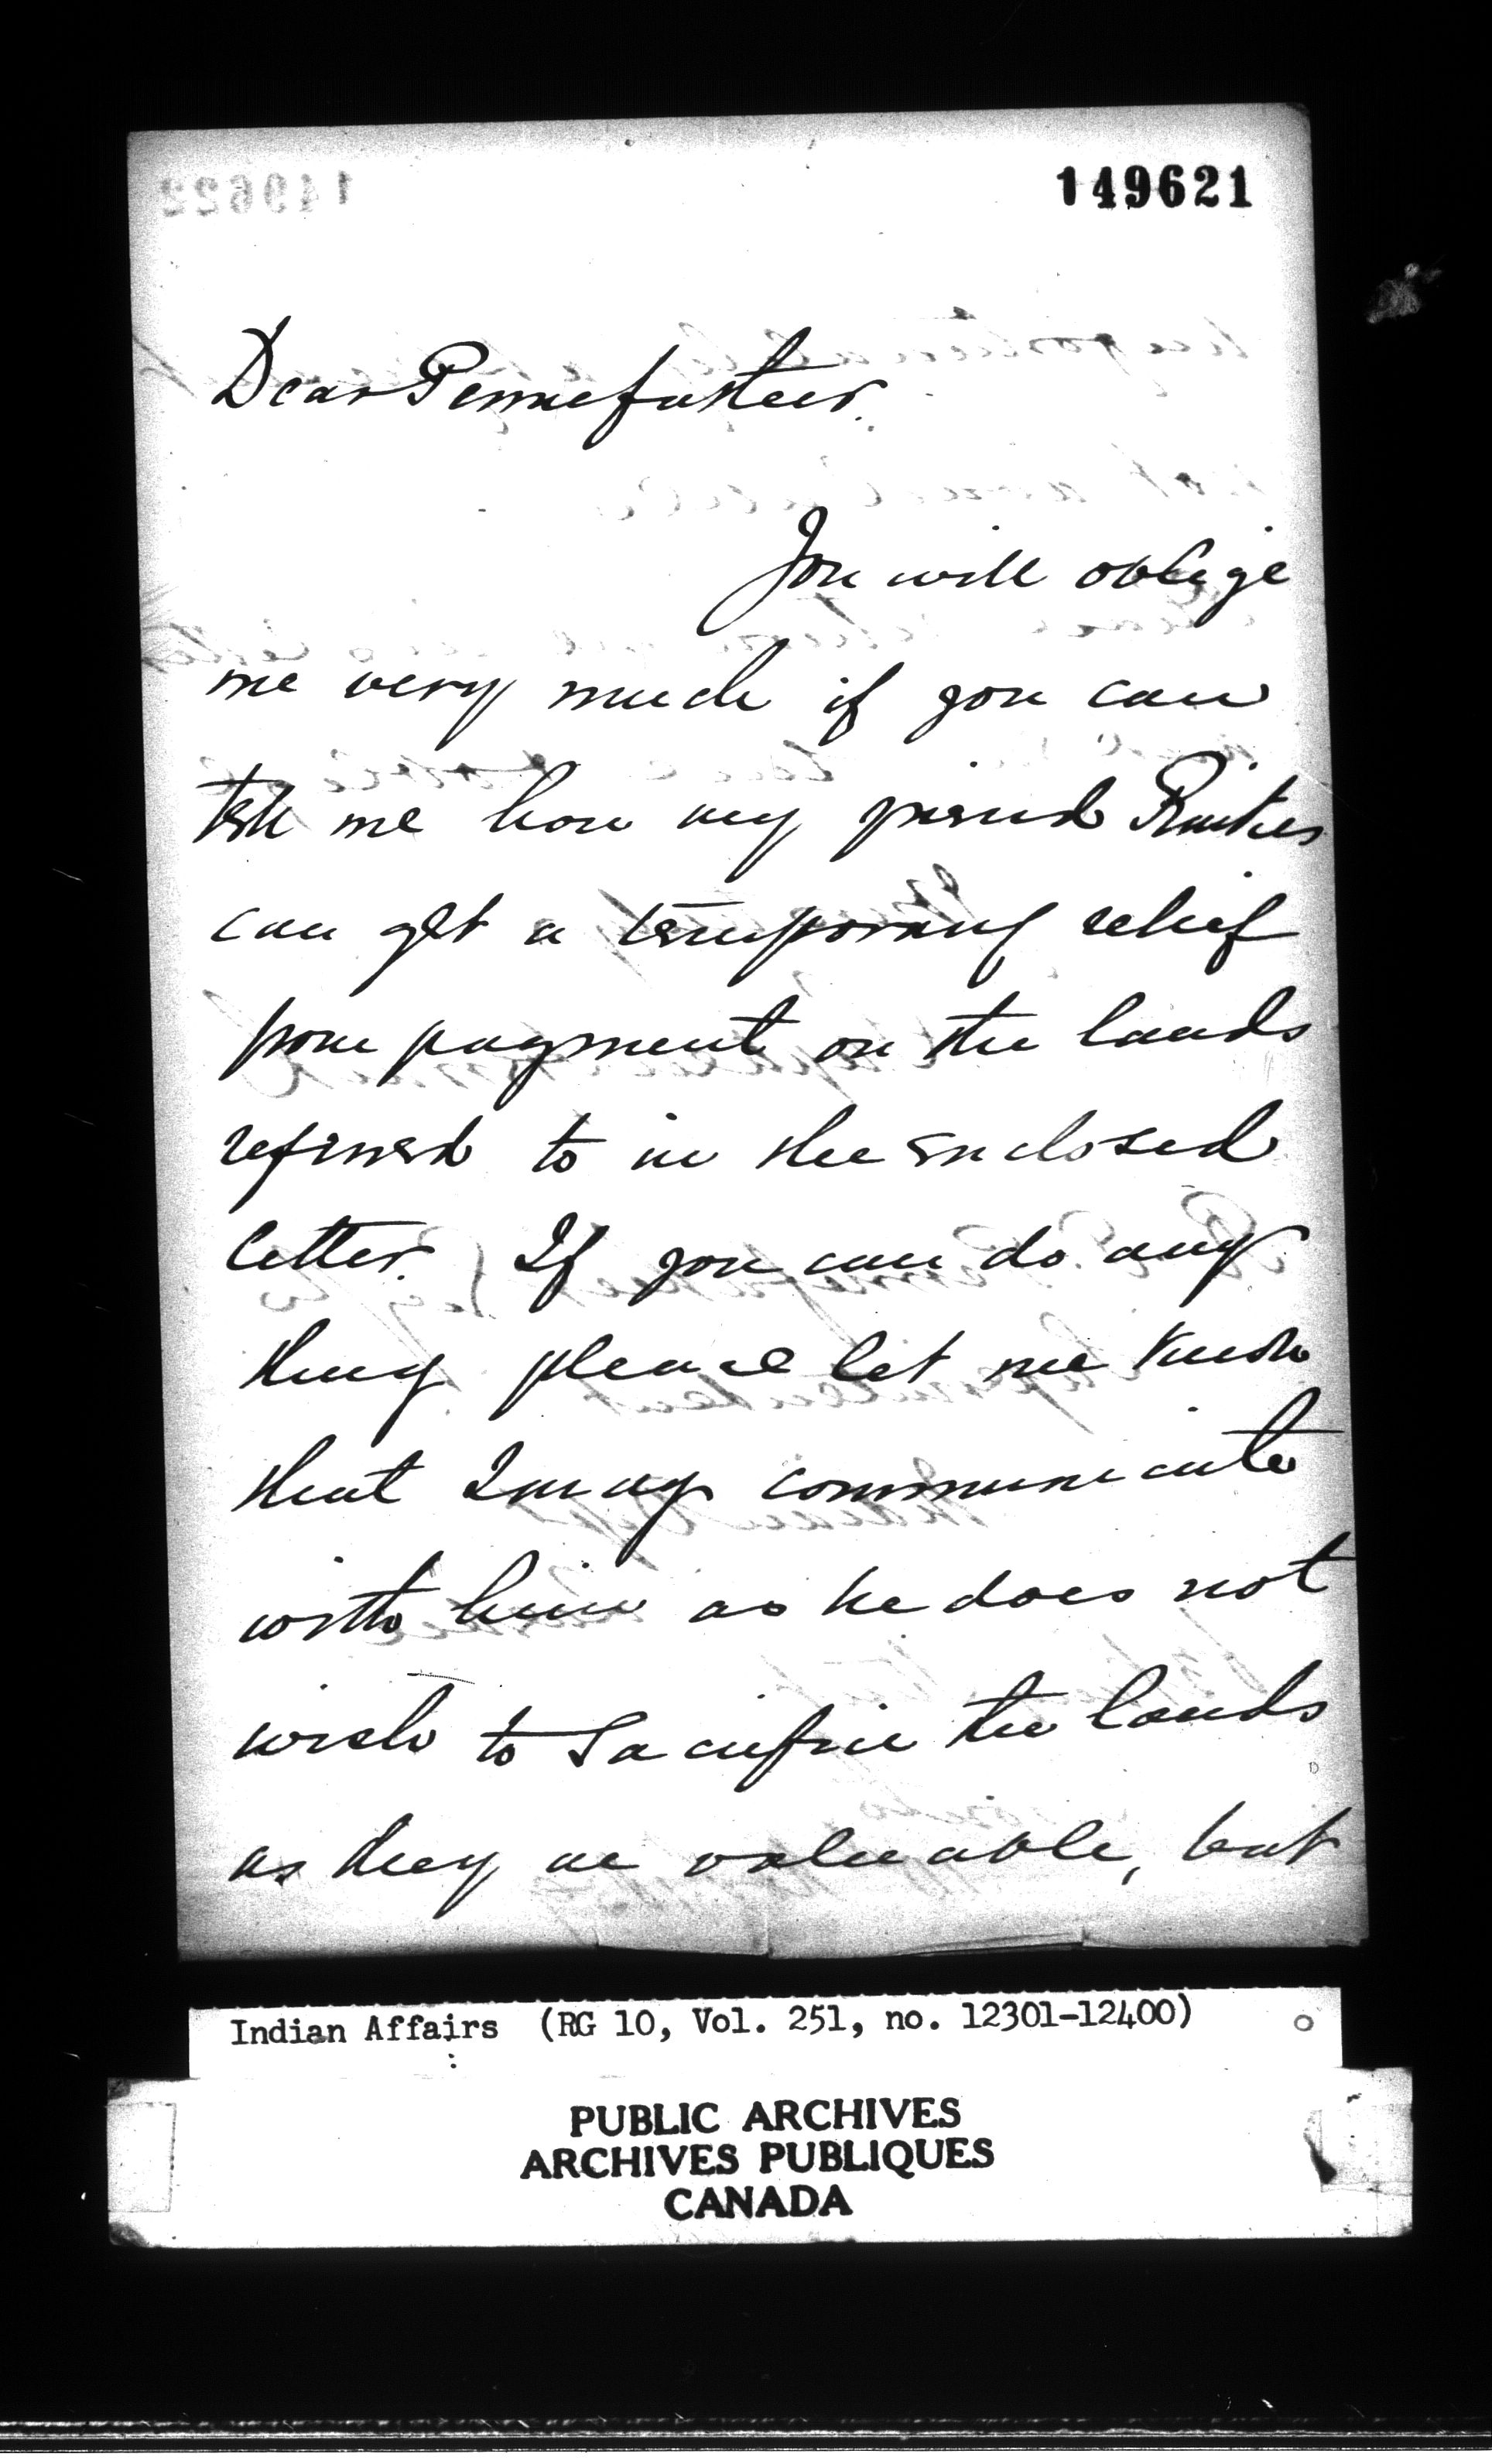 149621
Dear Pennefather.
You will oblige
me very much if you can
tell me how my friend
can get a temporary relief
from payment on the lands
referred to in the enclosed
letter. If you can do any
thing please let me know
that I may communicate
with him as he does not
wish to Sacrifice the lands
as they are valuable, but
Indian Affairs (RG 10, Vol. 251, no. 12301-12400)
PUBLIC ARCHIVES
ARCHIVES PUBLIQUES
CANADA